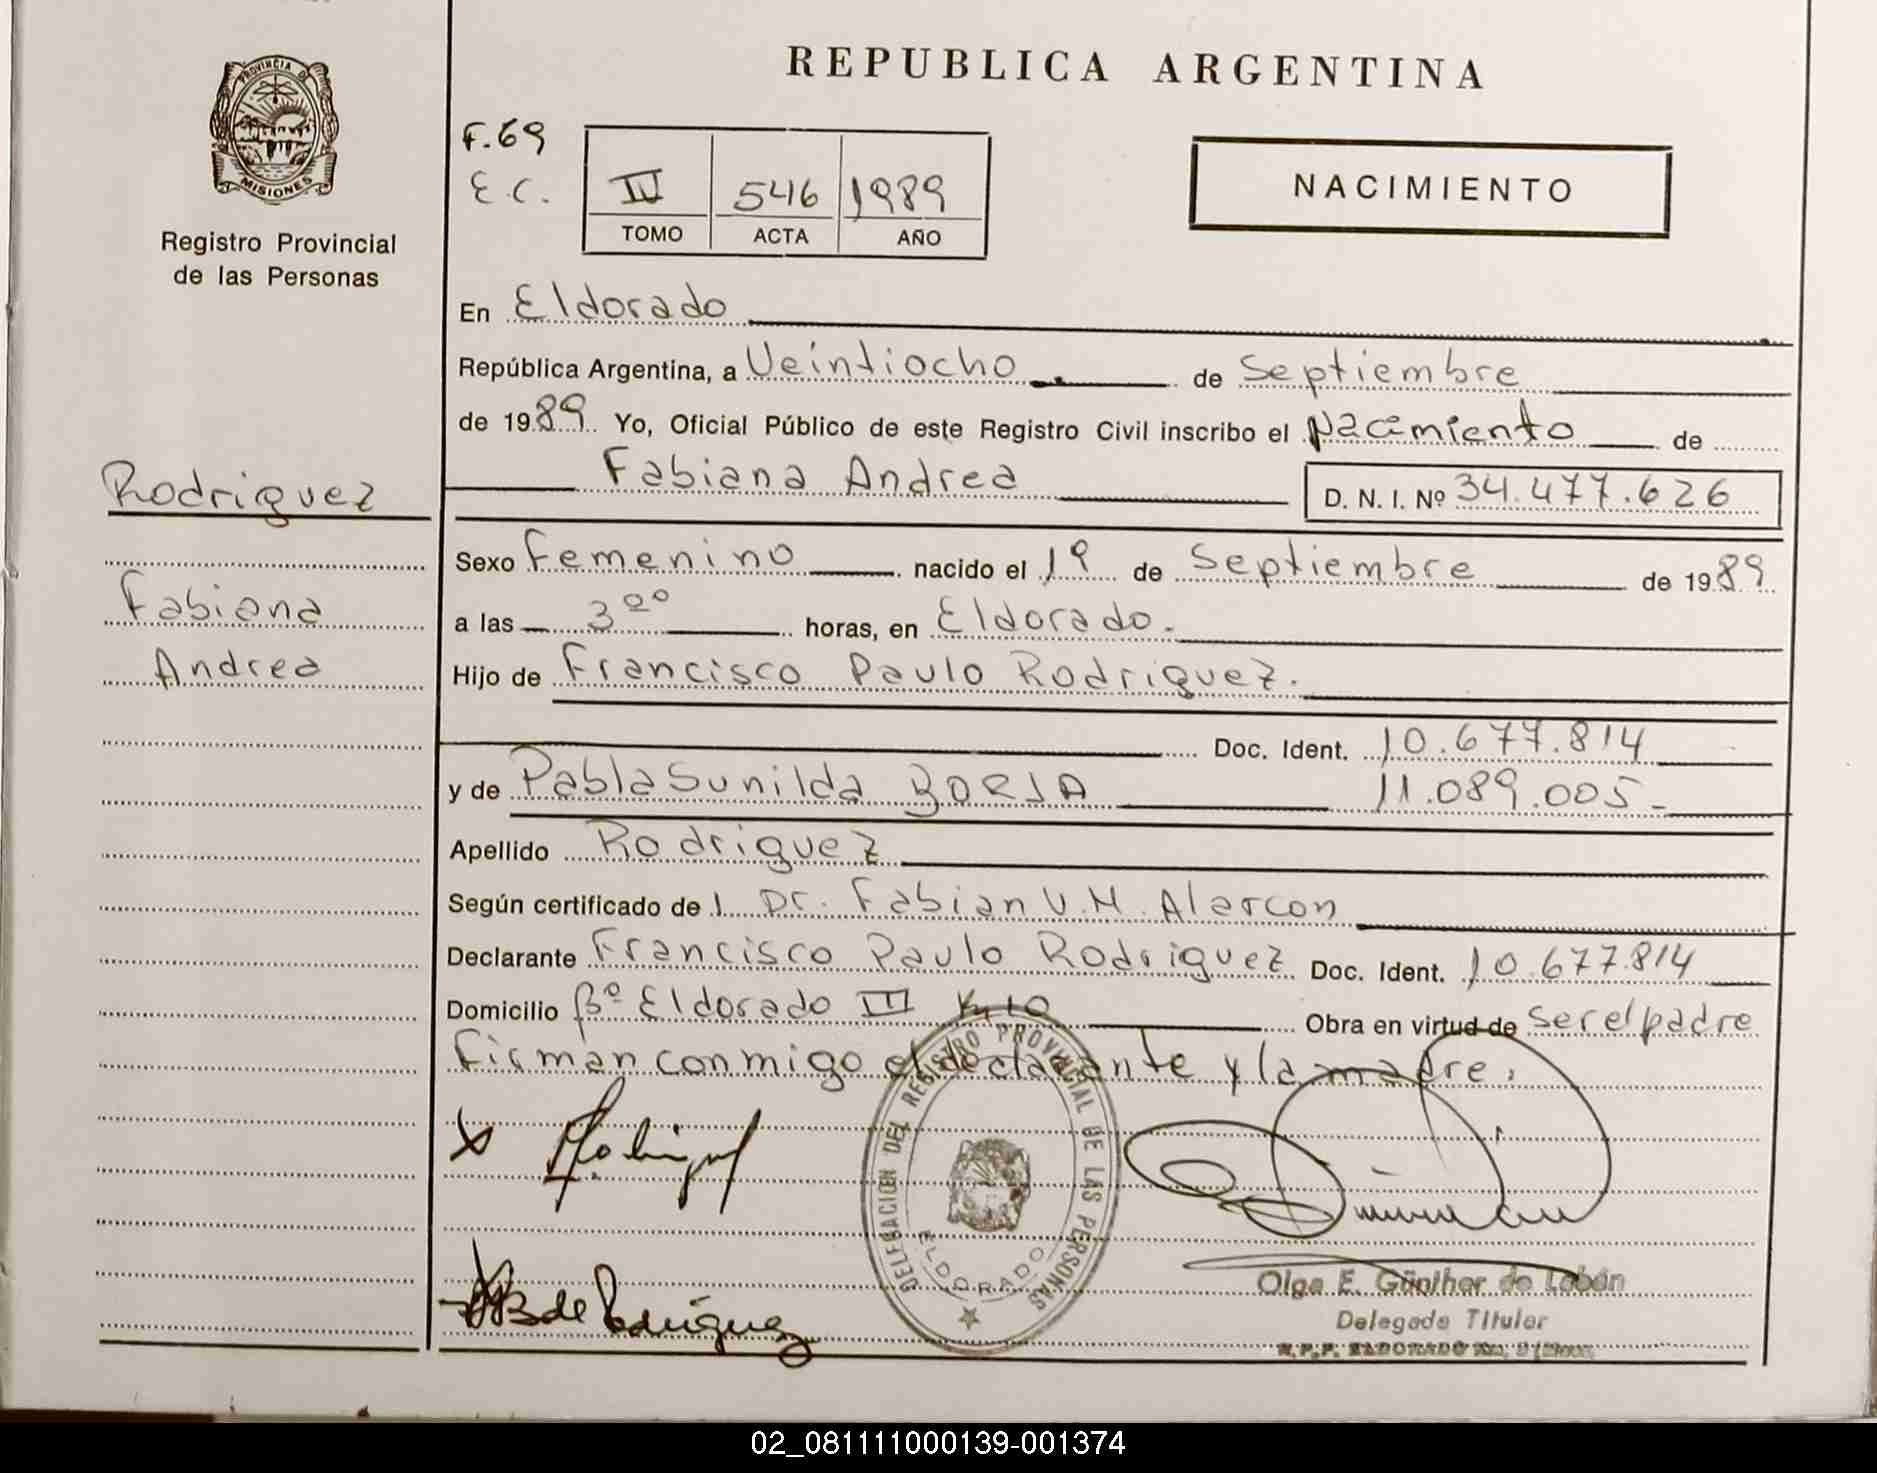 REPUBLICA ARGENTINA
PROVINCIA DE
MISIONES
Registro Provincial
de las Personas
F.69
E.C.
IV 546 1989
TOMO ACTA AÑO
NACIMIENTO
En Eldorado
República Argentina, a Veintiocho de Septiembre
de 1989 Yo, Oficial Público de este Registro Civil inscribo el Nacimiento de
Fabiana Andrea D. N. I. Nº 34.477.626
Rodriguez
Fabiana
Andrea
Sexo Femenino nacido el 1º de Septiembre de 1989
a las 3 ºº horas, en Eldorado.
Hijo de Francisco Paulo Rodriguez.
Doc. Ident. 10.677.814
y de Pabla Sunilda BORJA 11.089.005-
Apellido Rodriguez
Según certificado de l Dr. Fabian V.M. Alarcon
Declarante Francisco Paulo Rodriguez Doc. Ident. 10.677.814
Domicilio Bº Eldorado III Km 10 Obra en virtud de ser el padre
Firman conmigo el declarante y la madre.
DELEGACION DEL REGISTRO PROVINCIAL DE LAS PERSONAS
ELDORADO
B de Rodriguez
Olga E. Günther de Lobón
Delegado Titular
02_081111000139-001374